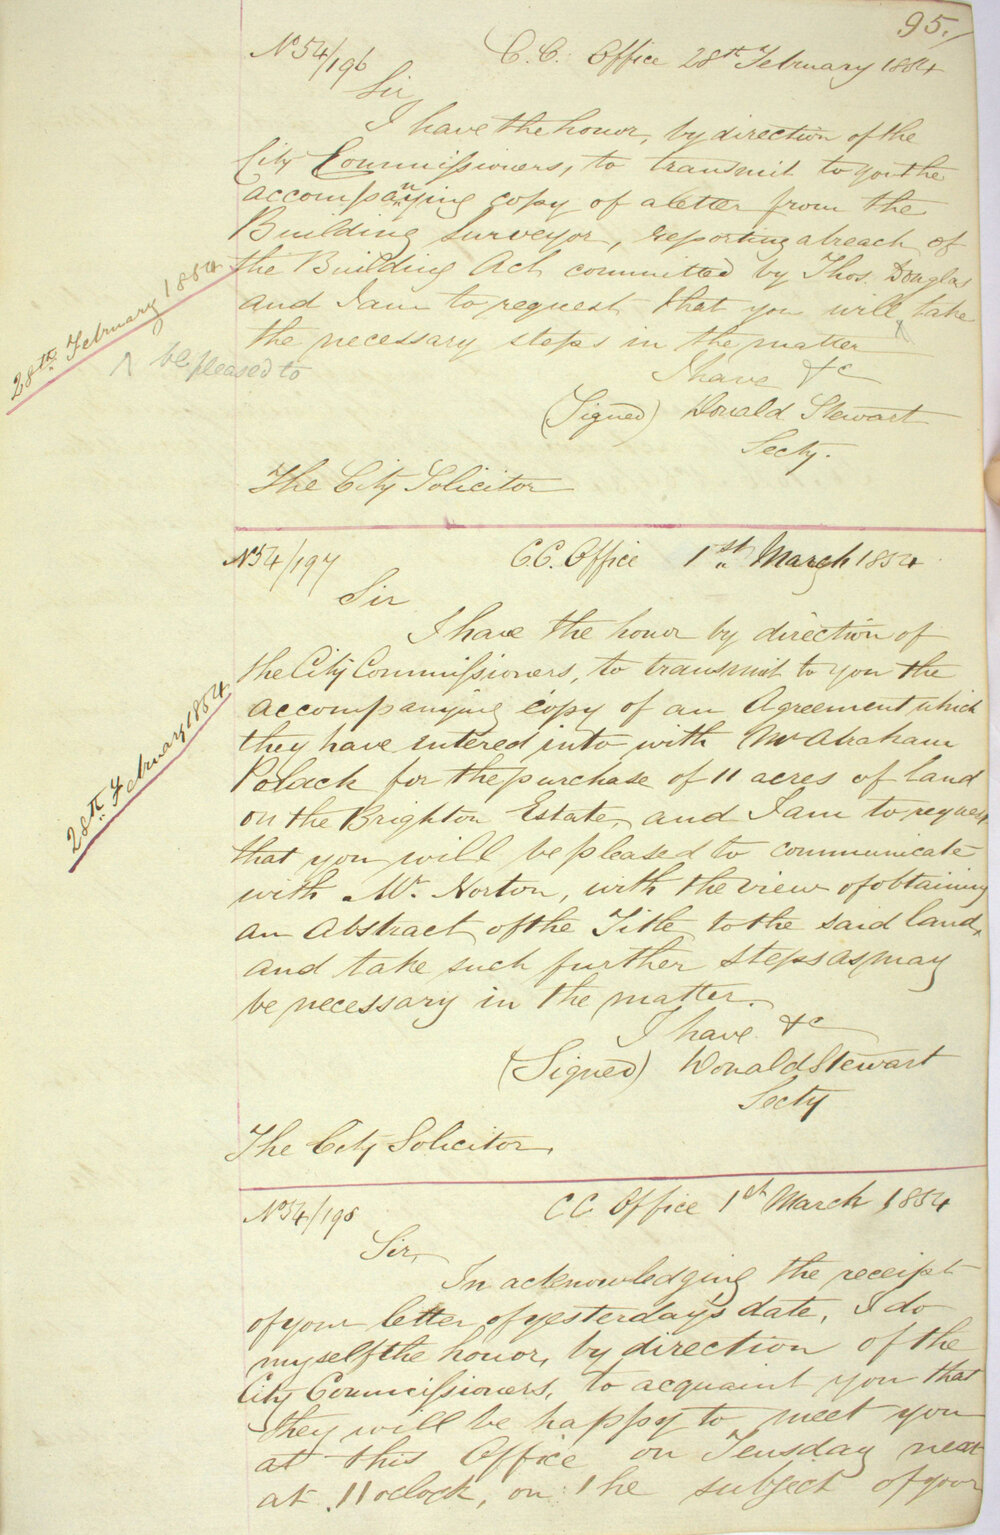 95.
No 54/196
C.C. Office 28th February 1854
Sir
I have the honor, by direction of the
City Commissioners, to transmit to you the
accompanying copy of a letter from the
Building Surveyor, reporting a breach of
the Building Act committed by Thos. Douglas
and I am to request that you will ^ take
the necessary steps in the matter
28th February 1854
^ be pleased to
I have &c
(Signed) Donald Stewart
Secty.
The City Solicitor
No 54/197
C.C. Office 1st March 1854
Sir
I have the honor by direction of
the City Commissioners, to transmit to you the
accompanying copy of an Agreement which
they have entered into with Mr Abraham
Polack for the purchase of 11 acres of land
on the Brighton Estate, and I am to request
that you will be pleased to communicate
with Mr. Norton, with the view of obtaining
an Abstract of the Title to the said land,
and take such further steps as may
be necessary in the matter.
28th February 1854
I have &c
(Signed) Donald Stewart
Secty
The City Solicitor,
No 54/198
C C Office 1st March 1854
Sir,
In acknowledging the receipt
of your letter of yesterday's date, I do
myself the honor, by direction of the
City Commissioners, to acquaint you that
they will be happy to meet you
at this Office on Teusday next
at 11 oclock, on the subject of your